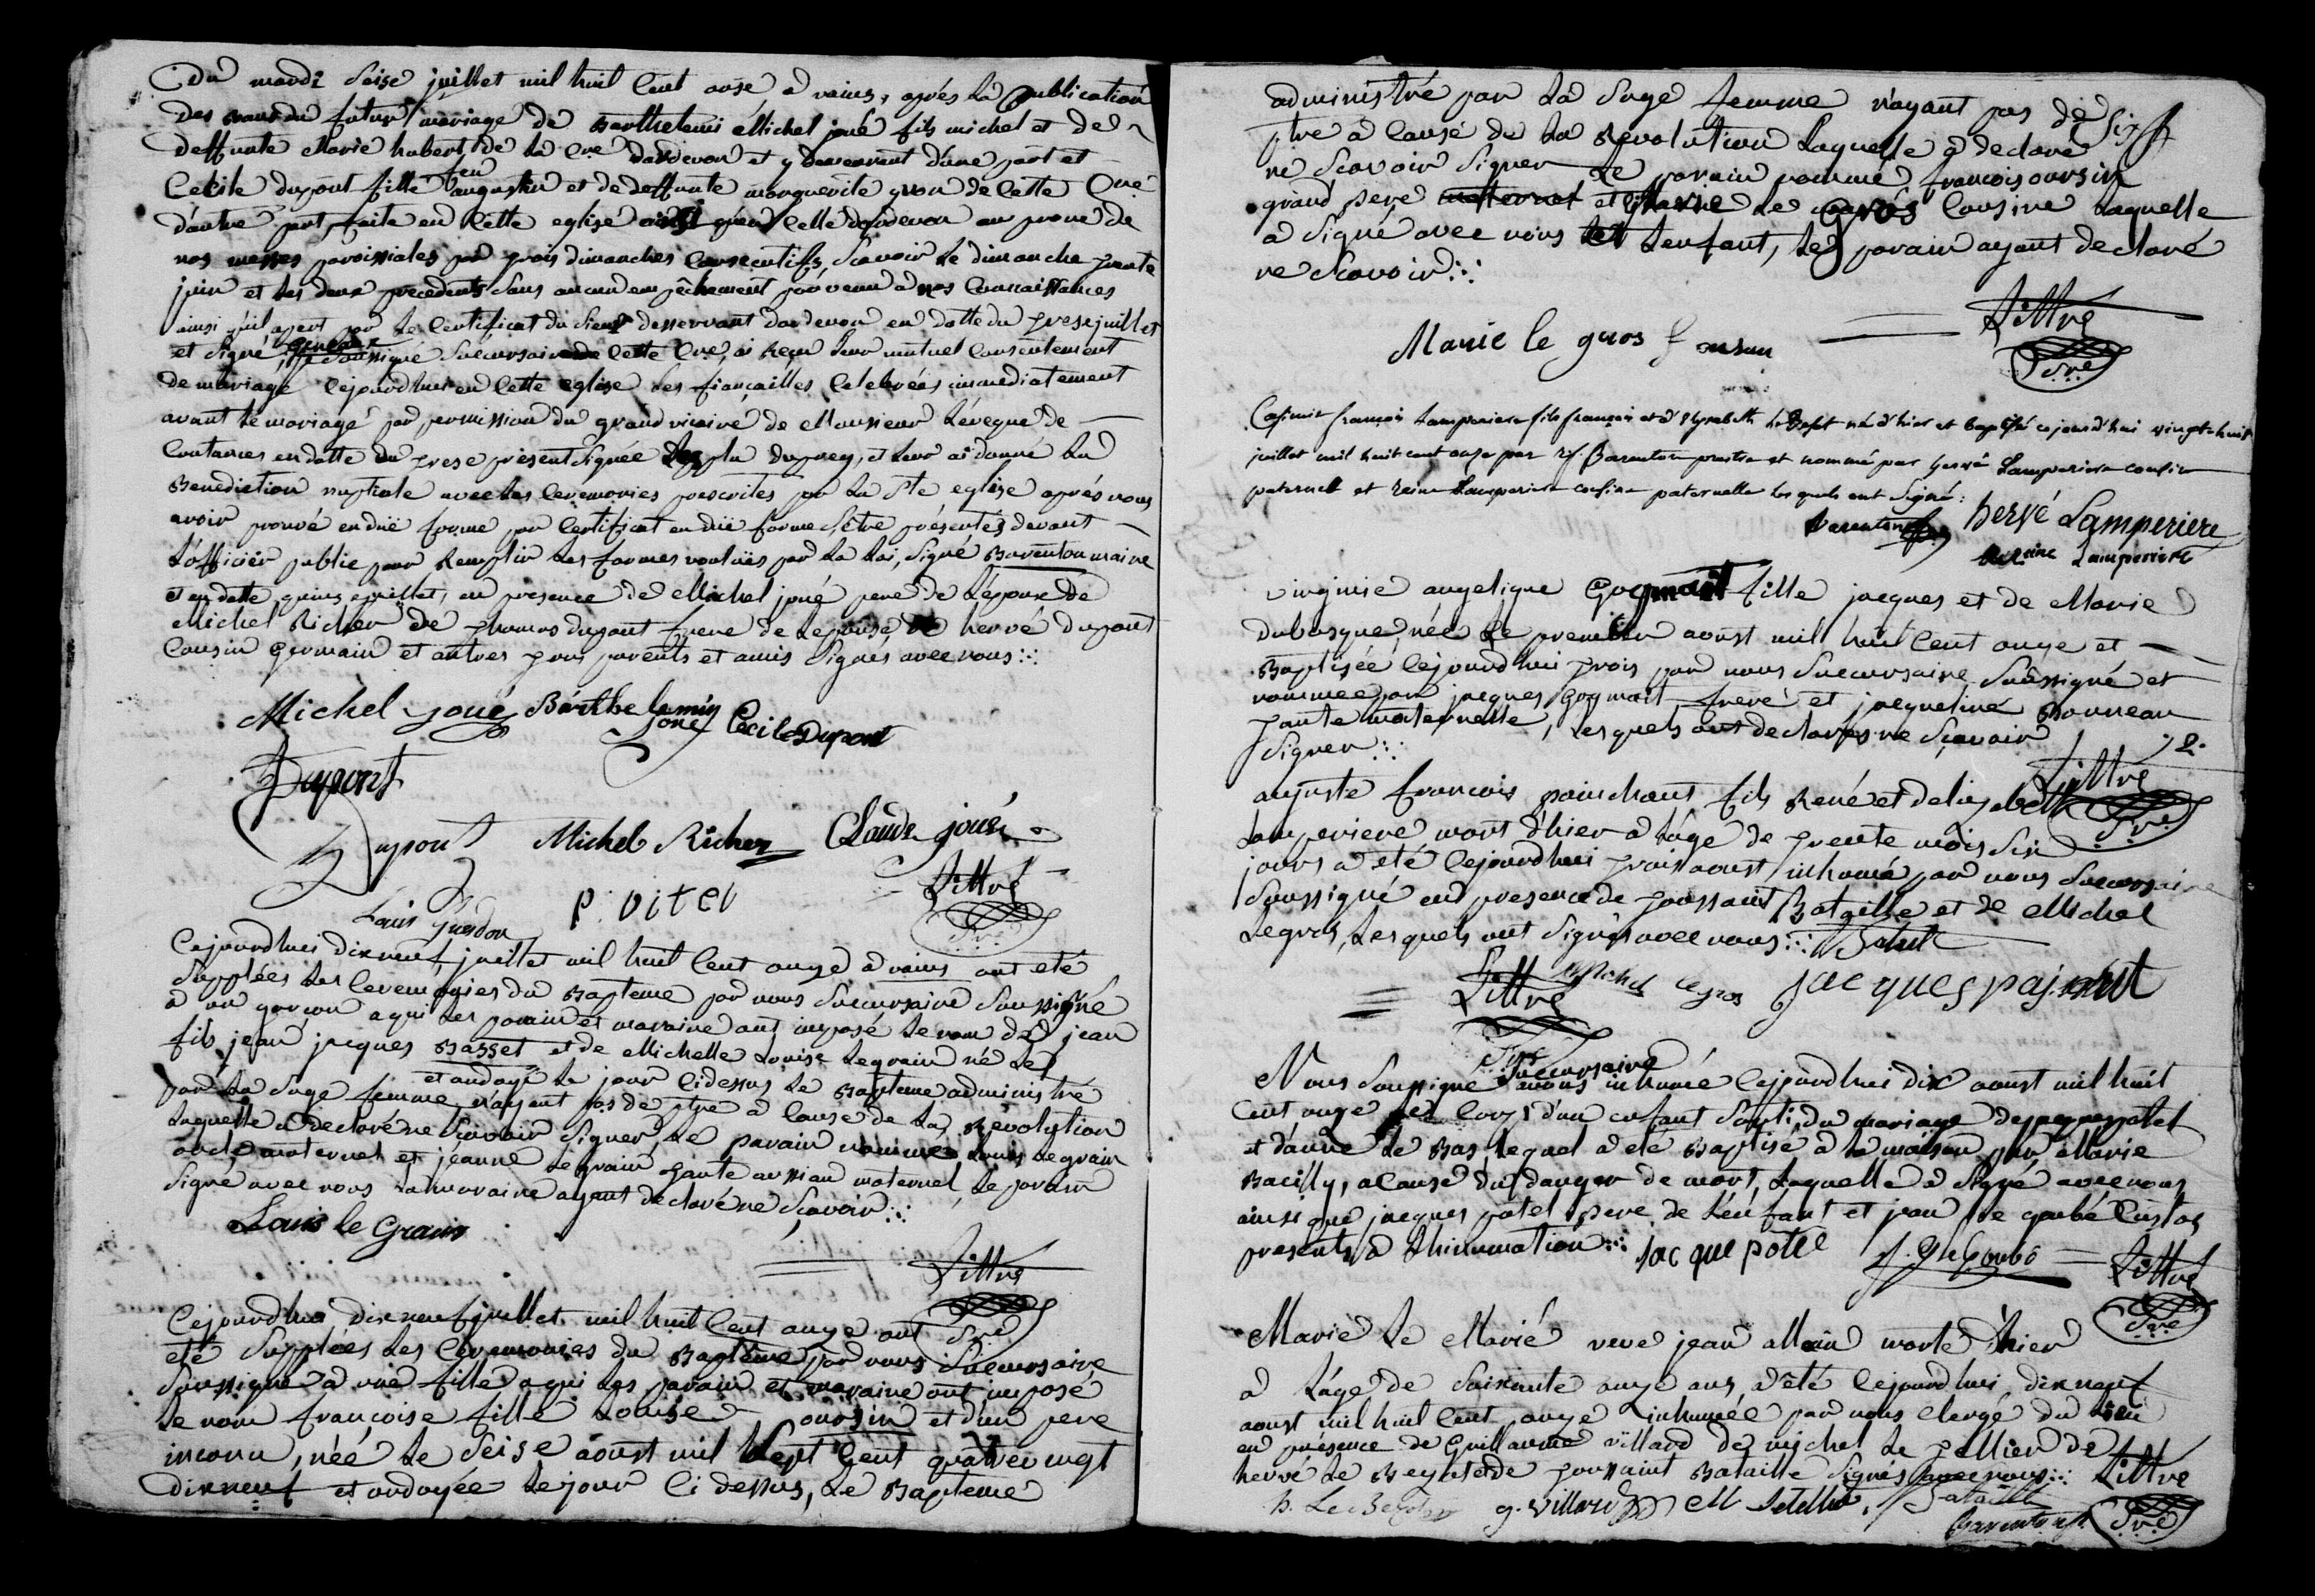 Du mardi Seise juillet mil huit Cent onse a vains, aprés La publication
des bans du futur mariage de Barthelemi Michel joué fils michel et de
deffunte Marie hubert de la Cne dardevon et y demeurant d'une part et
Cecile dupont fille feu augustin et de deffunte marguerite guon de Cette Cne
d'autre part faite en Cette eglise qu'en Celle dardevon au prone de
nos messes paroissiales par trois dimanches Consecutifs, Scavoir Le dimanche trente
juin et Les deux precedents Sans aucun empêchement parvenu a nos Connaissances
ainsi qu'il apert par Le Certificat du Sieur desservant dardevon en datte du trese juillet
et Signé Soussigné Succursaire de Cette Cne, ai reçu Leur mutuel Consentement
de mariage Cejourdhui en Cette eglise Les fiançailles Celebrées immediatement
avant Le mariage par permission du grand vicaire de Monsieur Léveque de
Coutances en datte du trese present Signée duprey, et Leur ai donné La
Benediction nuptiale avec Les Ceremonies prescrites par La Ste eglise aprés nous
avoir prouvé en duë forme par Certificat en duë forme S'etre présentés devant
L'officier public pour Remplir Les formes vouluës par La Loi, Signé Barenton maire
et en datte quinse juillet, en presence de Michel joué pere de L'epoux de
Michel Richer de thomas dupont frere de Lepouse de hervé dupont
Cousin Germain et autres tous parents et amis Signés avec nous
Michel joué Barthelemin joué Cecile Dupont
Dupont
Dupont Michel Richer Claude joué
Louis Guerdon P. vitel Littré
Sre
Cejourdhui dixneuf juillet mil huit Cent onze a vains ont eté
Supplées Les Ceremonies du Bapteme par nous Succursaire Soussigné
a un garçon a qui Les parain et maraine ont imposé Le nom de jean
fils jean jacques Basset et de Michelle Louise Legrain né Le
et ondoyé Le jour Cidessus Le Bapteme administré
par La Sage femme n'ayant pas de ptre a Cause de La Revolution
Laquelle a declaré ne Scavoir Signer, Le parain nommé Louis Legrain
oncle maternel et jeanne Legrain tante aussi au maternel, Le parain
Signé avec nous La maraine ayant declaré ne Scavoir
Louis le Grain
Littré
Sre
Cejourdhui dixneuf juillet mil huit Cent onze ont
eté Supplées Les Ceremonies du Bapteme par nous Succursaire
Soussigné a une fille a qui Les parain et maraine ont imposé
Le nom françoise fille Louise oursin et d'un pere
inconu, née Le Seise aoust mil Sept Cent quatrevingt
dixneuf et ondoyée Le jour Ci dessus, Le Bapteme
administré par La Sage femme n'ayant pas de
ptre a Cause de La Revolution Laquelle a declaré
ne Scavoir Signer Le parain nommé francois oursin
grand pere maternel et Marie Le Gros Cousine Laquelle
a Signé avec nous Lenfant, Le parain ayant declaré
ne Scavoir
Marie le gros Littré
Sre
Casimir françois Lamperiere fils françois et d'Elysabeth né d'hier et baptisé ce jourd'hui vingt-huit
juillet mil huit cent onze par Barenton prestre et nommé par hervé Lamperiere cousin
paternel et reine Lamperiere cousine paternelle les quels ont Signé:
Barenton hervé Lamperiere
reine Lamperiere
virginie angelique Gogmait fille jacques et de Marie
dubosque, née Le premier aoust mil huit Cent onze et
Baptisée Cejourdhui trois par nous Succursaire Soussigné et
nommée par jacques Gogmait frere et jacqueline Bonneau
tante maternelle, Lesquels ont declarés ne Scavoir
Signer
Littré
Sre
auguste francois painchaut fils René et delizabeth
Lamperiere mort d'hier a Láge de trente mois Six
jours a eté Cejourdhui trois aoust inhumé par nous Succursaire
Soussigné en presence de toussaint Bataille et de Michel
Legros, Lesquels ont Signés avec nous
Littré Michel legros jacques pajnnt
Sre
Succursaire
Nous Soussigné avons inhumé Cejourdhui dix aoust mil huit
Cent onze Le Corps d'un enfant Sorti du mariage de jacques potel
et d'anne Le Bas Lequel a eté Baptisé a La maison par Marie
Bacilly, a Cause du danger de mort, Laquelle a Signé avec nous
ainsi que jacques potel pere de L'enfant et jean Le goubé Custos
presents a Lhinumation jacque potel J. Le Goubé Littré
Sre
Marie Le Marié veuve jean allain morte d'hier
a Láge de Soixante onze ans, a été Cejourdhui dixneuf
aoust mil huit Cent onze inhumée par nous Clergé du Lieu
en présence de Guillaume villard de michel Le pellier de
hervé Le de toussaint Bataille Signés avec nous Littré
g. villard Bataille
Barenton Sre